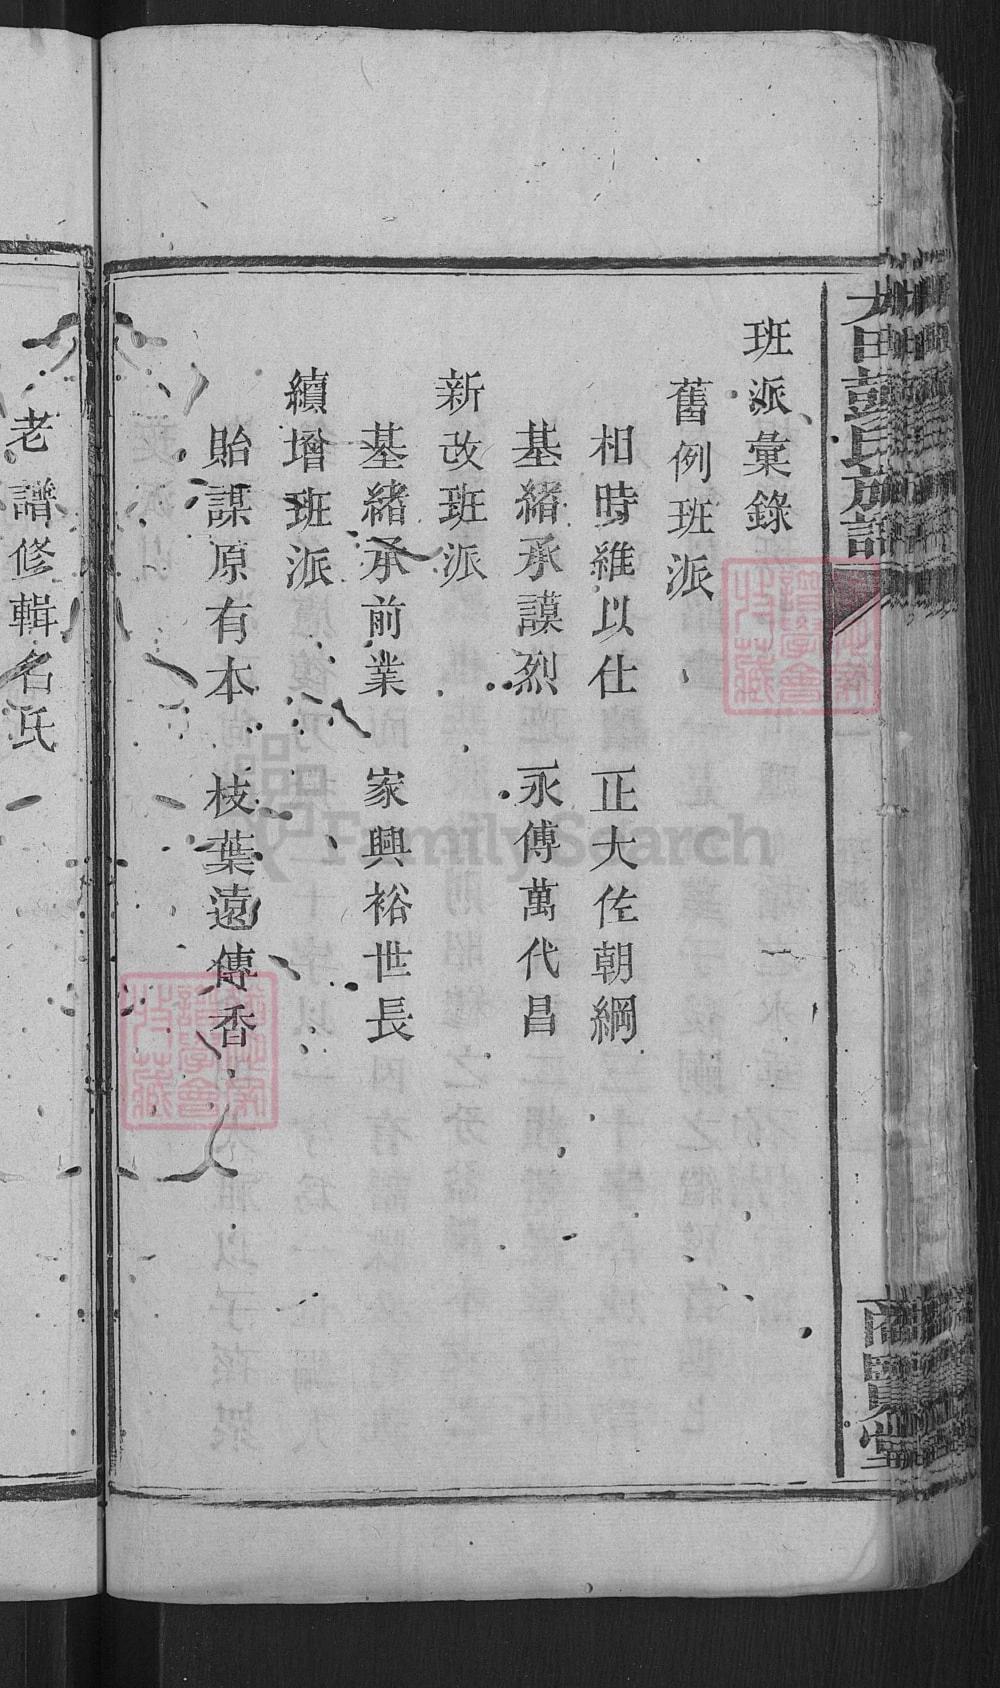 班派彙錄
舊例班派
相時維以仕　正大佐朝綱
基緒承謨烈　永傳萬代昌
新改班派
基緒承前業　家興裕世長
續增班派
貽謀原有本　枝葉遠傳香
老譜修輯名氏
彭氏族譜
堂
FamilySearch